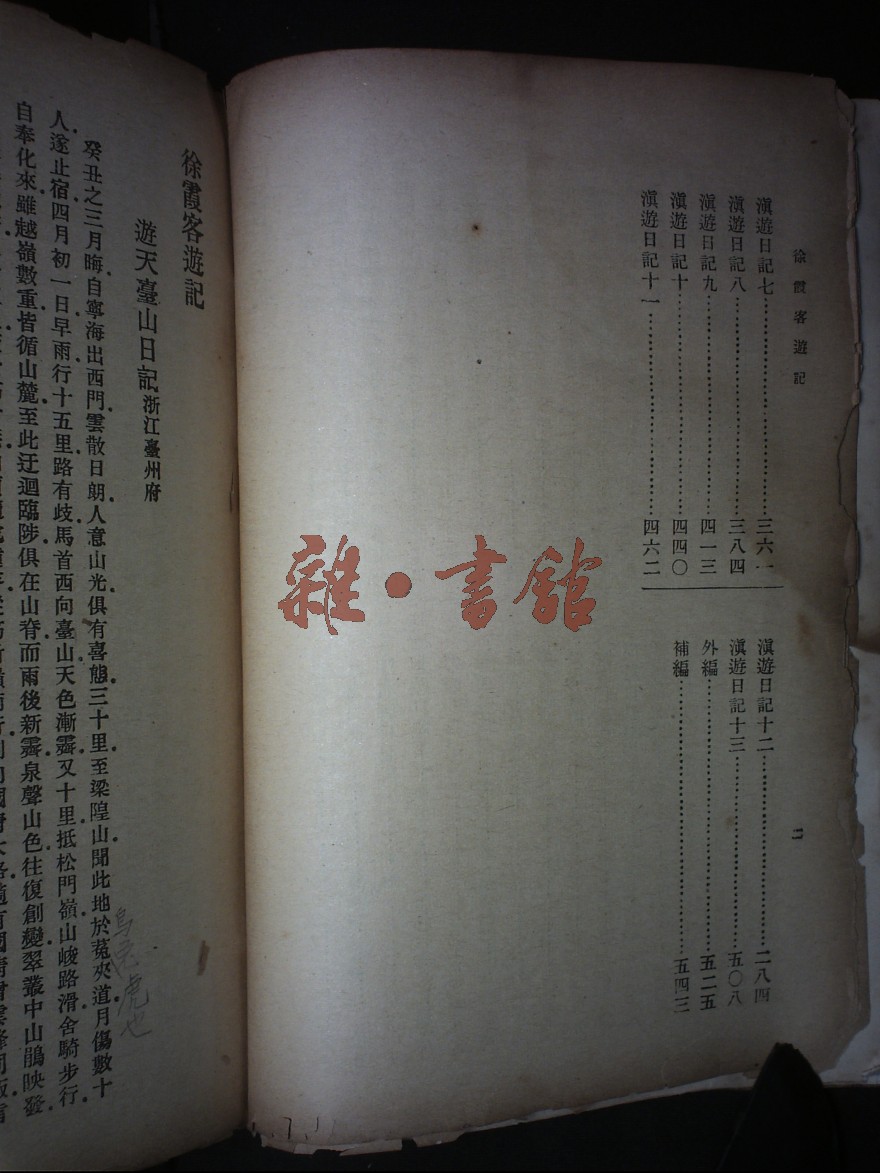 徐霞客遊記
滇遊日記七⋯⋯三六一
滇遊日記八⋯⋯三八四
滇遊日記九⋯⋯四一三
滇遊日記十⋯⋯四四〇
滇遊日記十一⋯⋯四六二
滇遊日記十二⋯⋯二八四
滇遊日記十三⋯⋯五〇八
外編⋯⋯五二五
補編⋯⋯五四三
二
雜•書館
徐霞客遊記
遊天臺山日記浙江臺州府
癸丑之三月晦自寧海出西門雲散日朗人意山光俱有喜態三十里至梁隍山聞此地於菟夾道月傷數十
人遂止宿四月初一日早雨行十五里路有歧馬首西向臺山天色漸霽又十里抵松門嶺山峻路滑舍騎步行
自奉化來雖越嶺數重皆循山麓至此迂迴臨陟俱在山脊而雨後新霽泉聲山色往復創變翠叢中山鵑映發
虎也